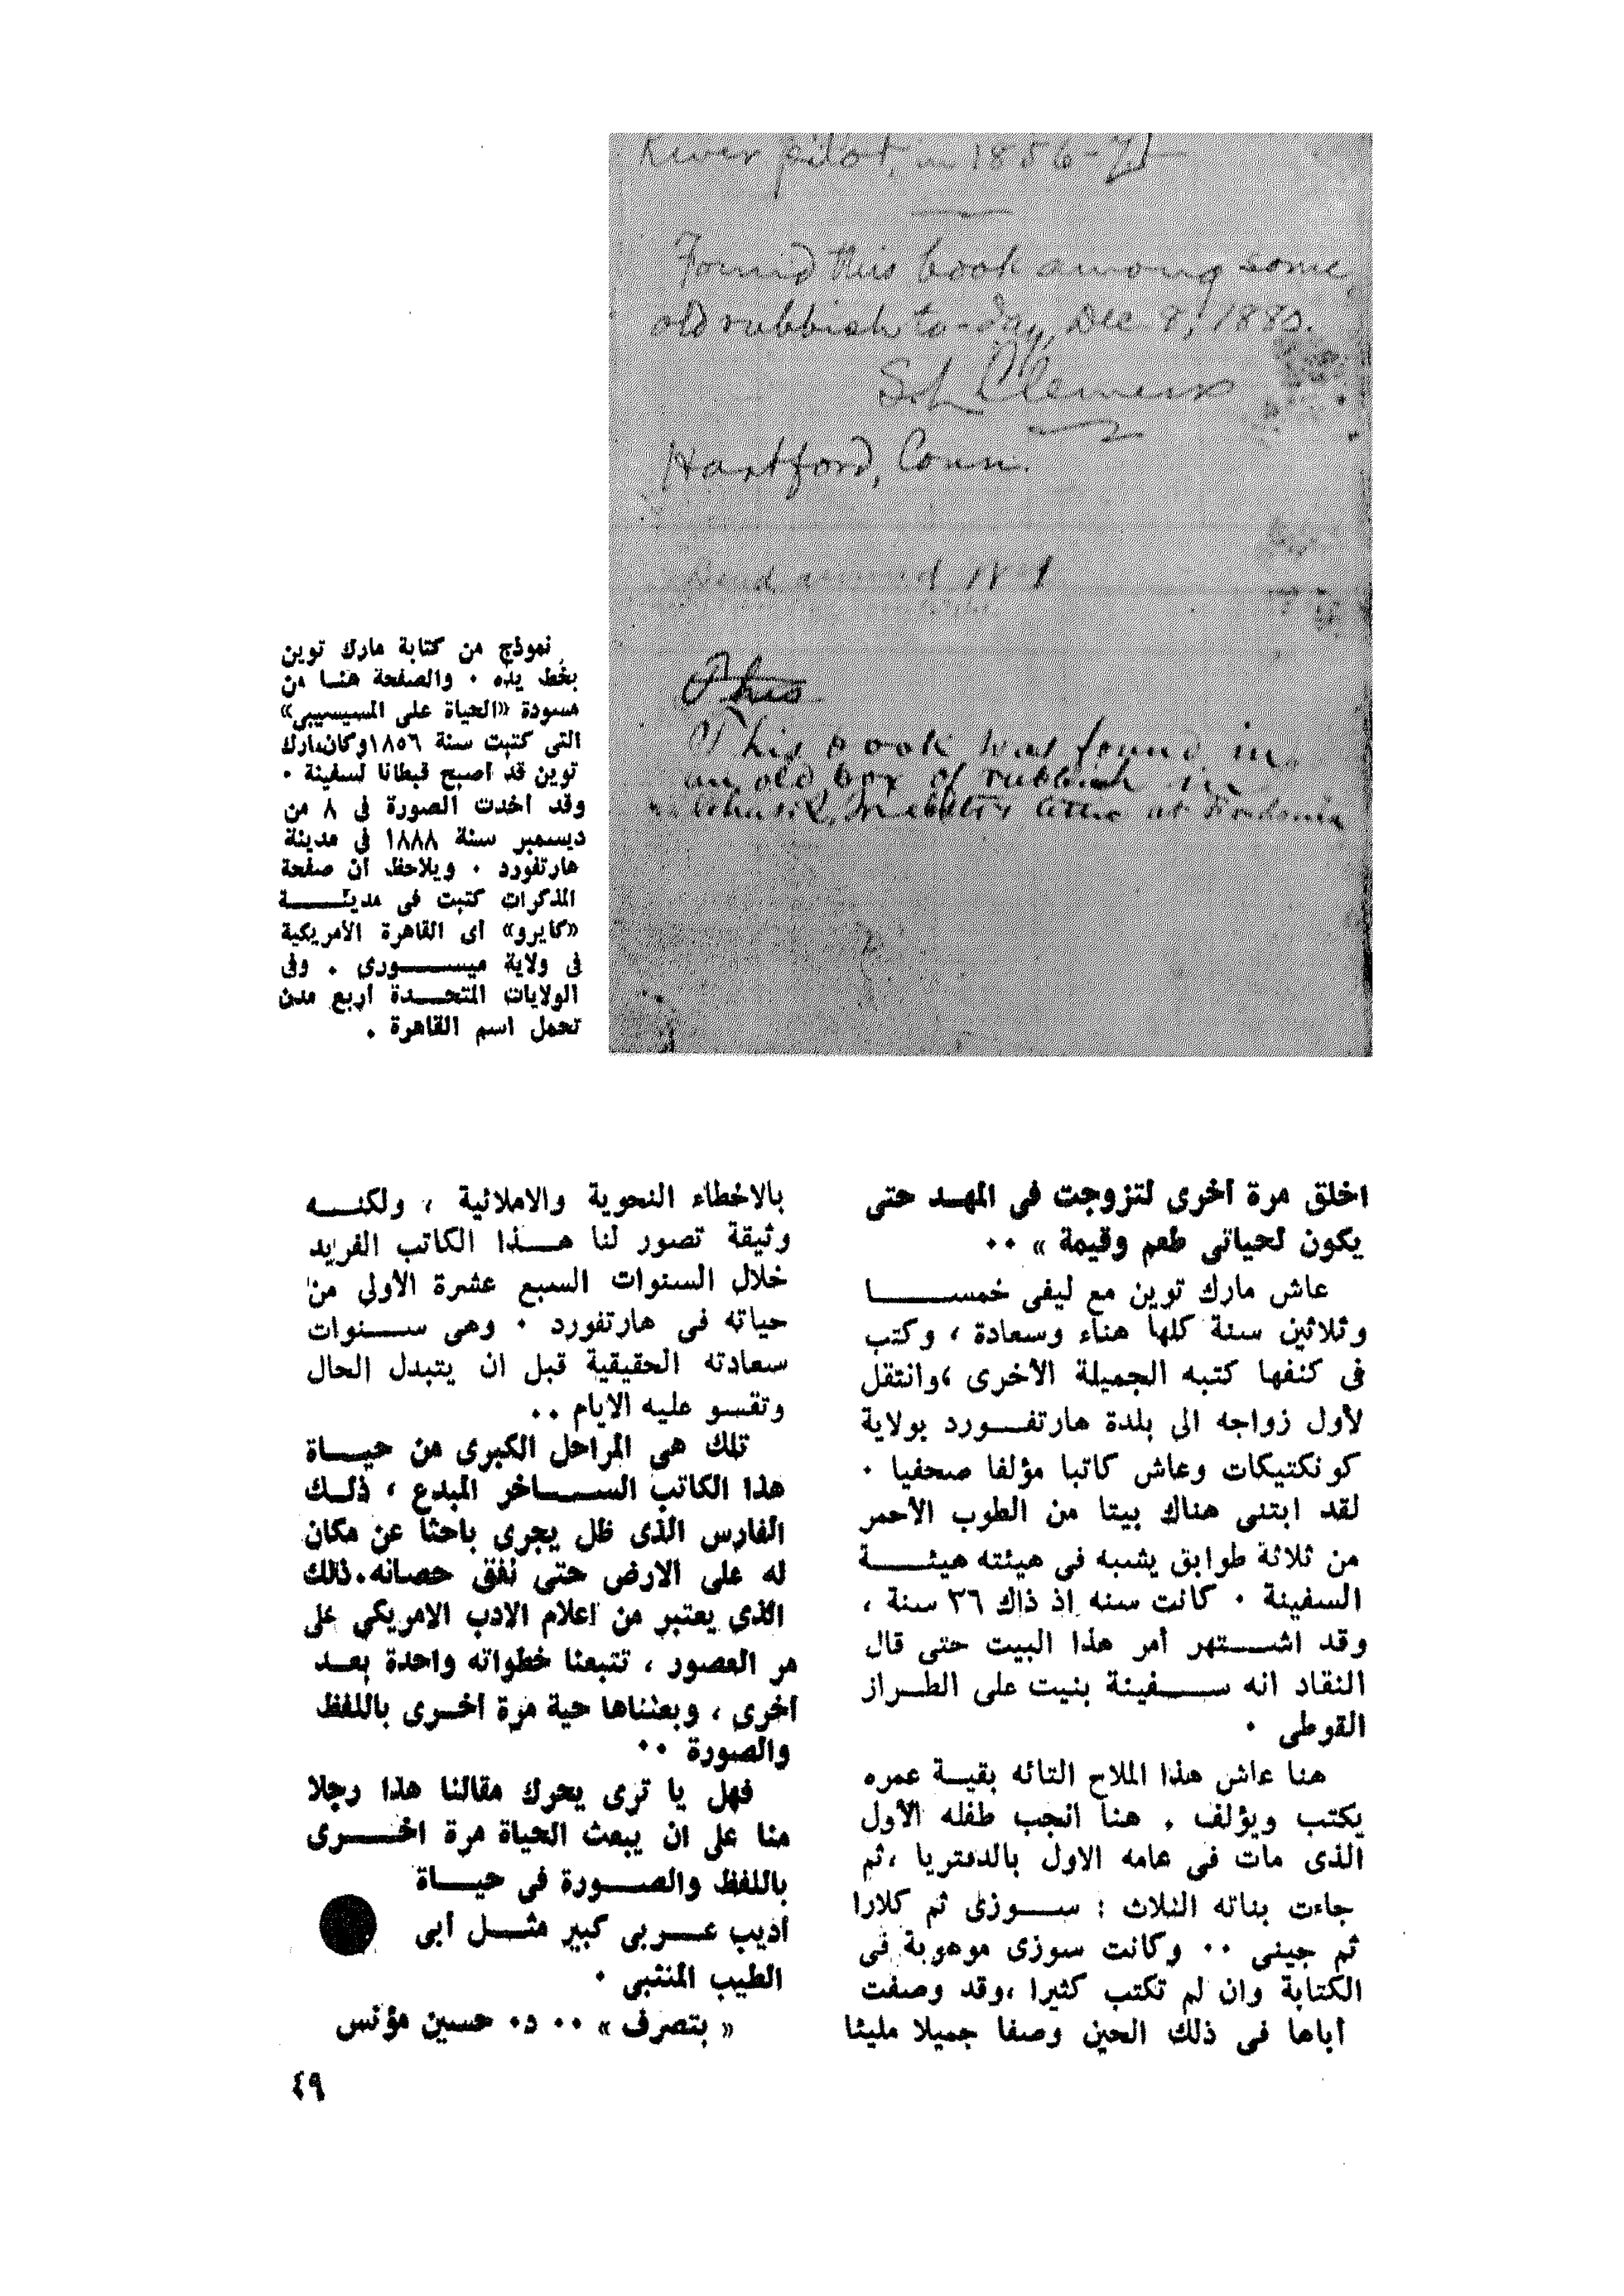 River pilot, in 1856-7
Found this book among some
old rubbish to-day, Dec. 8, 1880.
S L Clemens
Hartford, Conn.
This
This book was found in
an old box of rubbish in
attic at Fredonia
نموذج من كتابة مارك توين
بخط يده ٠ والصفحة هنا من
مسودة «الحياة على المسيسيبى»
التى كتبت سنة ١٨٥٦ وكان مارك
توين قد أصبح قبطانا لسفينة ٠
وقد أخذت الصورة فى ٨ من
ديسمبر سنة ١٨٨٨ فى مدينة
هارتفورد ٠ ويلاحظ أن صفحة
المذكرات كتبت فى مدينة
«كايرو» أى القاهرة الأمريكية
فى ولاية ميسورى ٠ وفى
الولايات المتحدة أربع مدن
تحمل اسم القاهرة ٠
اخلق مرة أخرى لتزوجت فى المهد حتى
يكون لحياتى طعم وقيمة » ٠٠
عاش مارك توين مع ليفى خمسا
وثلاثين سنة كلها هناء وسعادة ، وكتب
فى كنفها كتبه الجميلة الأخرى ،وانتقل
لأول زواجه الى بلدة هارتفورد بولاية
كونكتيكات وعاش كاتبا مؤلفا صحفيا ٠
لقد ابتنى هناك بيتا من الطوب الأحمر
من ثلاثة طوابق يشبه فى هيئته هيئة
السفينة ٠ كانت سنه اذ ذاك ٣٦ سنة ،
وقد اشتهر أمر هذا البيت حتى قال
النقاد انه سفينة بنيت على الطراز
القوطى ٠
هنا عاش هذا الملاح التائه بقية عمره
يكتب ويؤلف ٠ هنا انجب طفله الأول
الذى مات فى عامه الاول بالدفتريا ،ثم
جاءت بناته الثلاث : سوزى ثم كلارا
ثم جينى ٠٠ وكانت سوزى موهوبة فى
الكتابة وان لم تكتب كثيرا ،وقد وصفت
أباها فى ذلك الحين وصفا جميلا مليئا
بالاخطاء النحوية والاملائية ، ولكنه
وثيقة تصور لنا هذا الكاتب الفريد
خلال السنوات السبع عشرة الأولى من
حياته فى هارتفورد ٠ وهى سنوات
سعادته الحقيقية قبل ان يتبدل الحال
وتقسو عليه الايام ٠٠
تلك هى المراحل الكبرى من حياة
هذا الكاتب الساخر المبدع ، ذلك
الفارس الذى ظل يجرى باحثا عن مكان
له على الارض حتى نفق حصانه٠ذلك
الذى يعتبر من اعلام الادب الامريكى على
مر العصور ، تتبعنا خطواته واحدة بعد
أخرى ، وبعثناها حية مرة أخرى باللفظ
والصورة ٠٠
فهل يا ترى يحرك مقالنا هذا رجلا
منا على ان يبعث الحياة مرة اخرى
باللفظ والصورة فى حياة
أديب عربى كبير مثل أبى
الطيب المتنبى ٠
« بتصرف » ٠٠ د٠ حسين مؤنس
٤٩